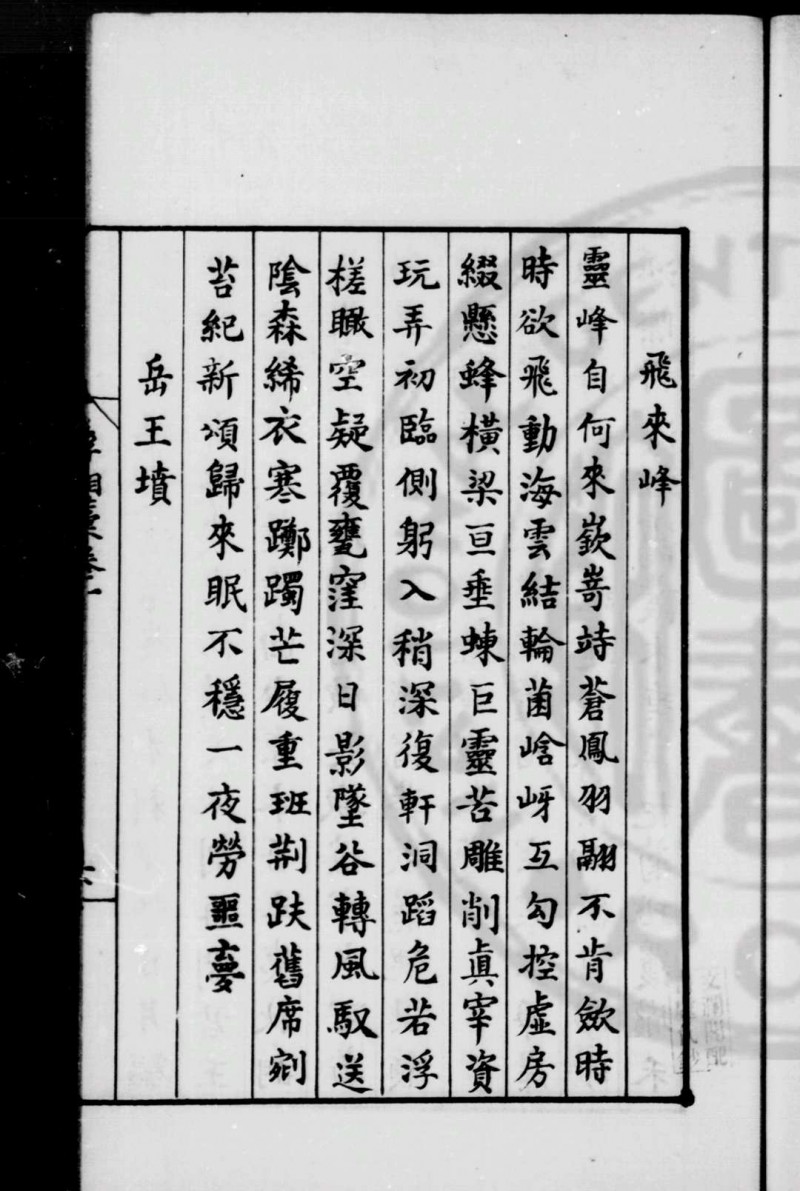 飛來峰
靈峰自何來嶔㟢峙蒼鳳羽翮不肯歛時
時欲飛動海雲結輪菌㟏岈互勾控虛房
綴懸蜂橫梁亘垂蝀巨靈苦雕削眞宰資
玩弄初臨側躬入稍深復軒洞蹈危若浮
槎瞰空疑覆甕窪深日影墜谷轉風馭送
陰森絺衣寒躑躅芒履重班荆趺舊席剜
苔紀新頌歸來眠不穩一夜勞噩夢
岳王墳